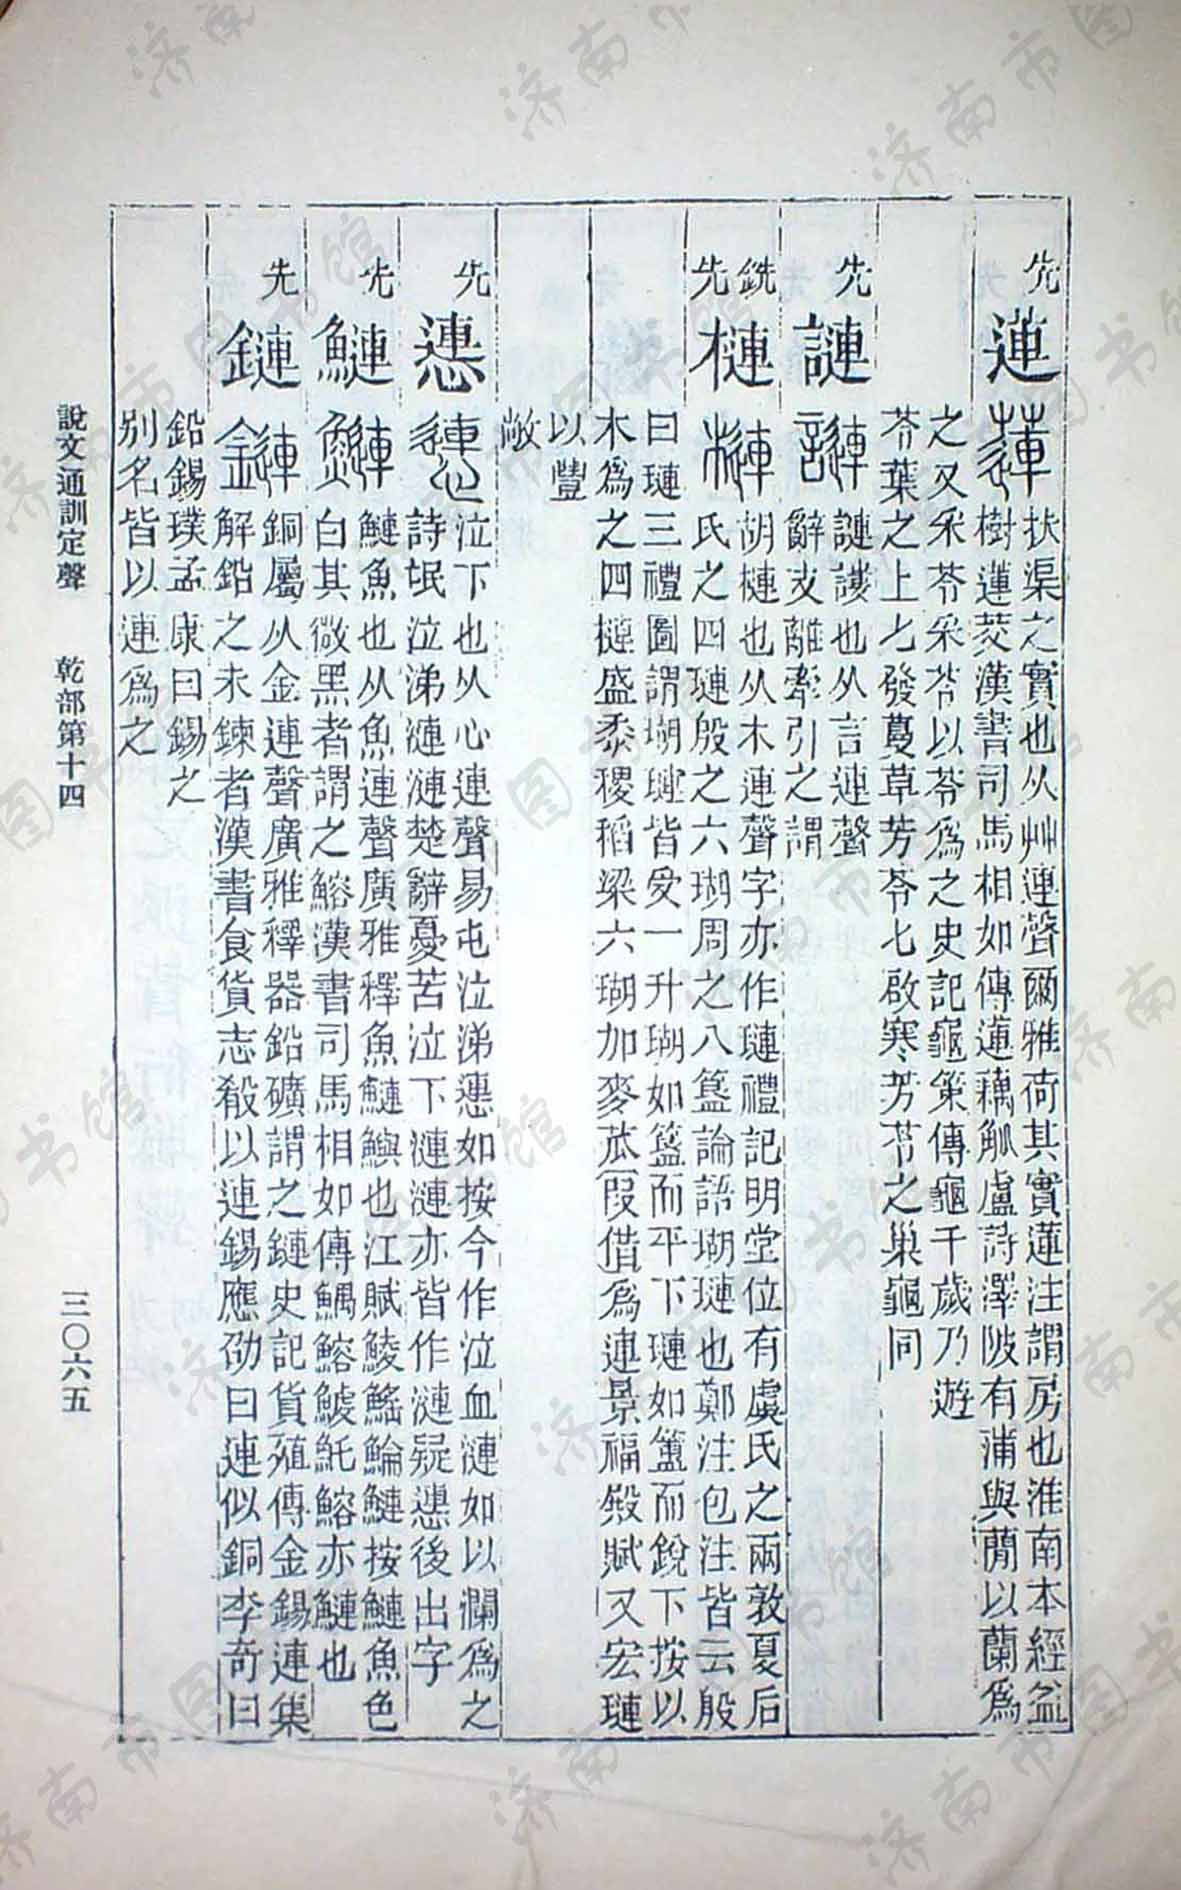 先 蓮 扶渠之實也从艸連聲爾雅荷其實蓮注謂房也淮南本經益
樹蓮菱漢書司馬相如傳蓮藕觚盧詩澤陂有蒲與蕳以蘭爲
之又采苓采苓以苓爲之史記龜策傳龜千歲乃遊
苓葉之上七發蔓草芳苓七啟寒芳苓之巢龜同
先 謰 謰謱也从言連聲
辭支離牽引之謂
銑 先 槤 胡槤也从木連聲字亦作璉禮記明堂位有虞氏之兩敦夏后
氏之四璉殷之六瑚周之八簋論語瑚璉也鄭注包注皆云殷
曰璉三禮圖謂瑚璉皆受一升瑚如簋而平下璉如簠而銳下按以
木爲之四槤盛黍稷稻粱六瑚加麥苽叚借爲連景福殿賦又宏璉
以豐
敞
先 慩 泣下也从心連聲易屯泣涕慩如按今作泣血漣如以瀾爲之
詩氓泣涕漣漣楚辭憂苦泣下漣漣亦皆作漣疑慩後出字
先 鰱 鰱魚也从魚連聲廣雅釋魚鰱鱮也江賦鯪鰩鯩鰱按鰱魚色
白其微黑者謂之鰫漢書司馬相如傳鰅鰫鰬魠鰫亦鰱也
先 鏈 銅屬从金連聲廣雅釋器鉛礦謂之鏈史記貨殖傳金錫連集
解鉛之未鍊者漢書食貨志殽以連錫應劭曰連似銅李奇曰
鉛錫璞孟康曰錫之
別名皆以連爲之
說文通訓定聲 乾部第十四 三〇六五
济南市图书馆